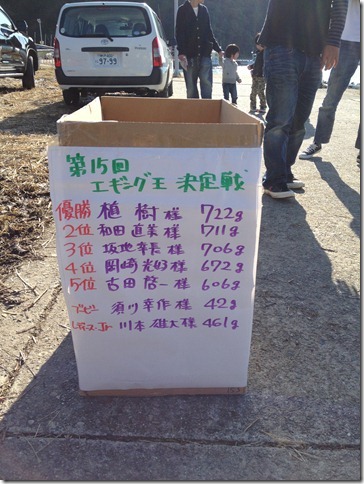 第15回
エギング王 決定戦
優勝 植 樹 様 722g
2位 和田 直美 様 711g
3位 坂地 幸長 様 706g
4位 岡崎 光好 様 672g
5位 古田 啓一 様 606g
ブービー 須川 幸作 様 42g
レディース・Jr 川本 雄大 様 461g
97-99